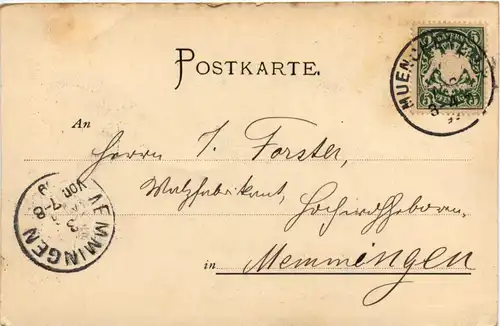 BAYERN
5 5
MUENCHEN
POSTKARTE.
An
Herrn J. Forster,
Malzfabrikant, Hochwohlgeboren,
in Memmingen
MEMMINGEN
Vor.
7-8
3